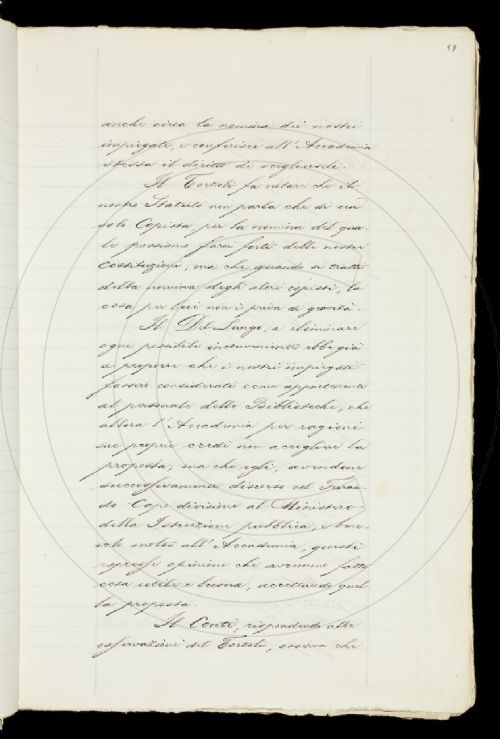 59
anche circa la nomina dei nostri
impiegati, e conferisce all'Accademia
stessa il diritto di sceglierseli.
Il Tortoli fa notare che il
nostro Statuto non parla che di un
solo Copista per la nomina del qua-
le possiamo farci forti delle nostre
Costituzioni; ma che quando si tratti
della nomina degli altri copisti, la
cosa per lui non è priva di gravità.
Il Del Lungo, a eliminare
ogni possibile inconveniente ebbe già
a proporre che i nostri impiegati
fossero considerati come appartenenti
al personale delle Biblioteche; che
allora l'Accademia per ragioni
sue proprie credé non accogliere la
proposta; ma che egli, avendone
successivamente discorso col
do Capo divisione al Ministero
della Istruzione pubblica,
vole molto all'Accademia, questi
espresse opinione che avremmo fatto
cosa utile e buona, accettando quel-
la proposta.
Il Conti, rispondendo alle
osservazioni del Tortoli, osserva che